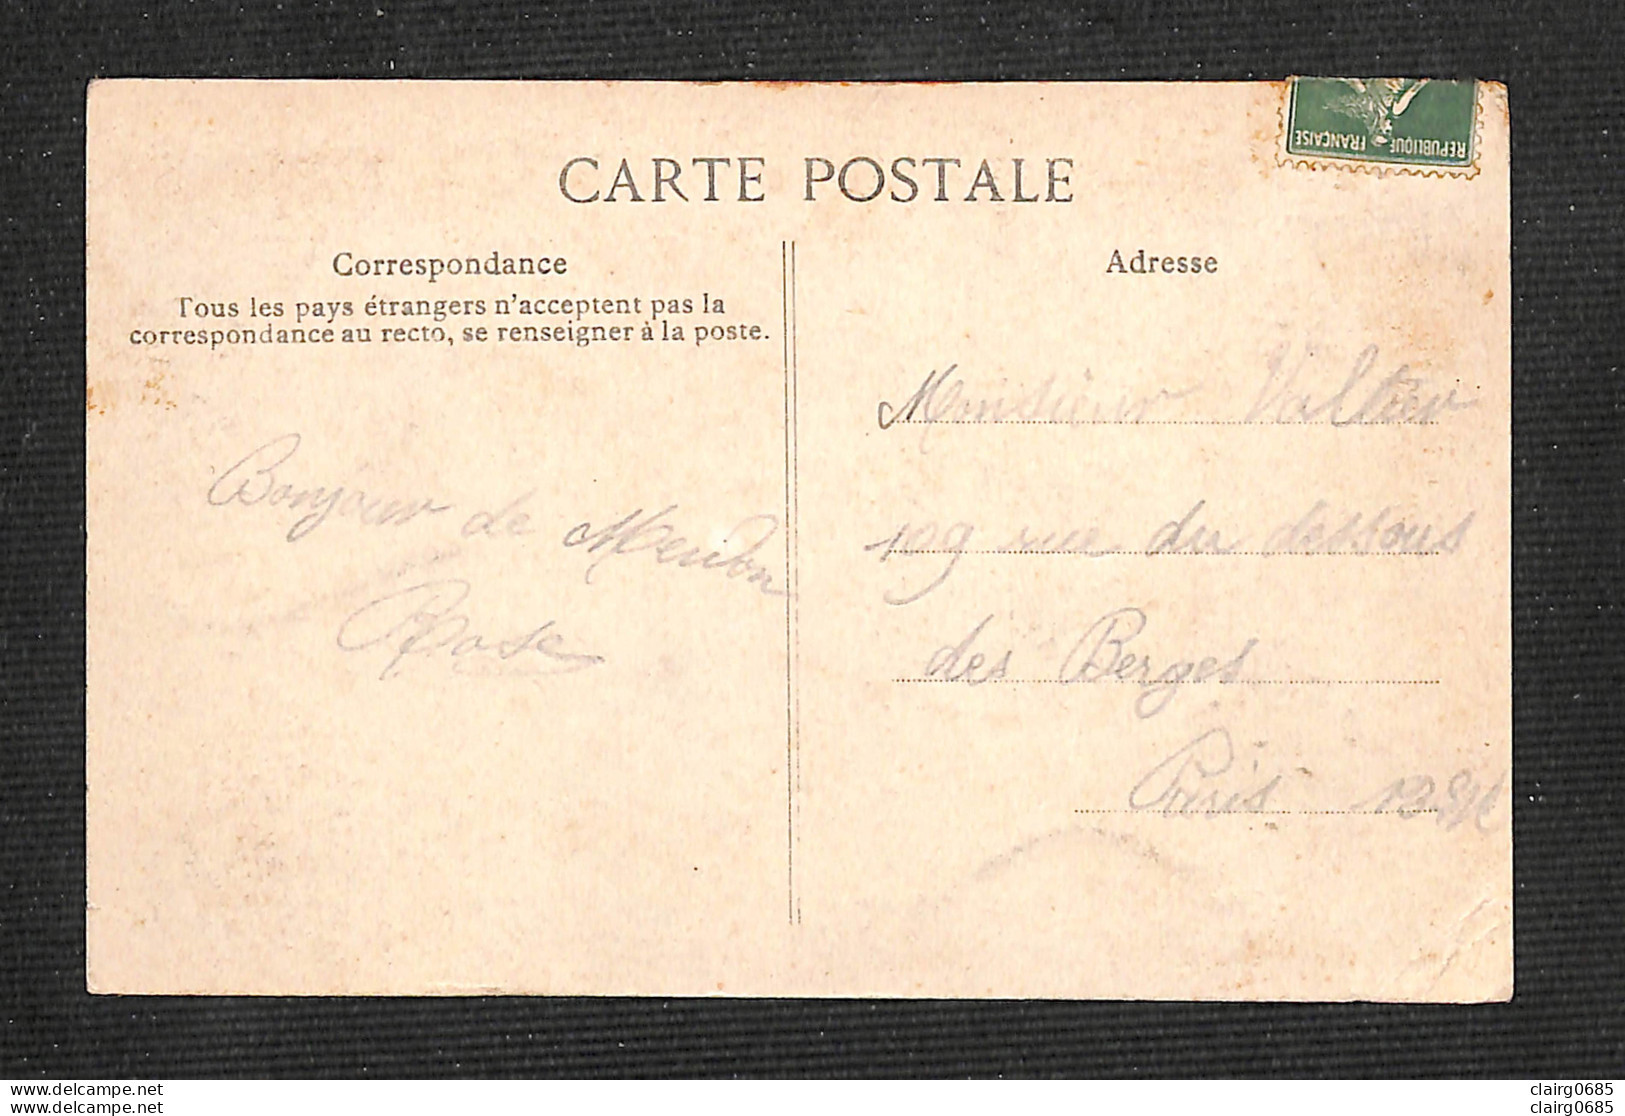 REPUBLIQUE FRANÇAISE
CARTE POSTALE
Correspondance
Tous les pays étrangers n'acceptent pas la
correspondance au recto, se renseigner à la poste.
Bonjour de Meudon
Rose
Adresse
Monsieur Valtier
109 rue du dessous
des Berges
Paris 13
delcampe.net
clairg0685
clairg0685